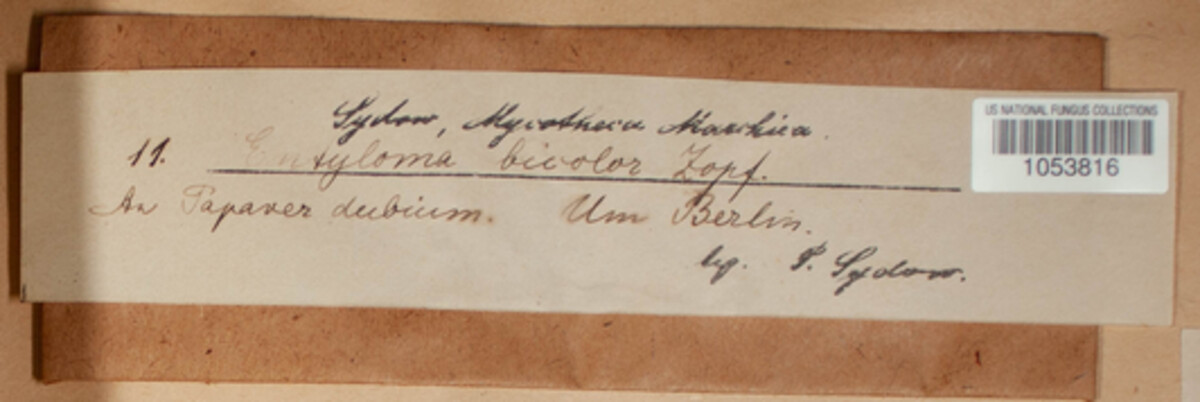 Sydow, Mycotheca Marchica.
11. Entyloma bicolor Zopf.
An Papaver dubium. Um Berlin.
leg. P. Sydow.
US NATIONAL FUNGUS COLLECTIONS
1053816